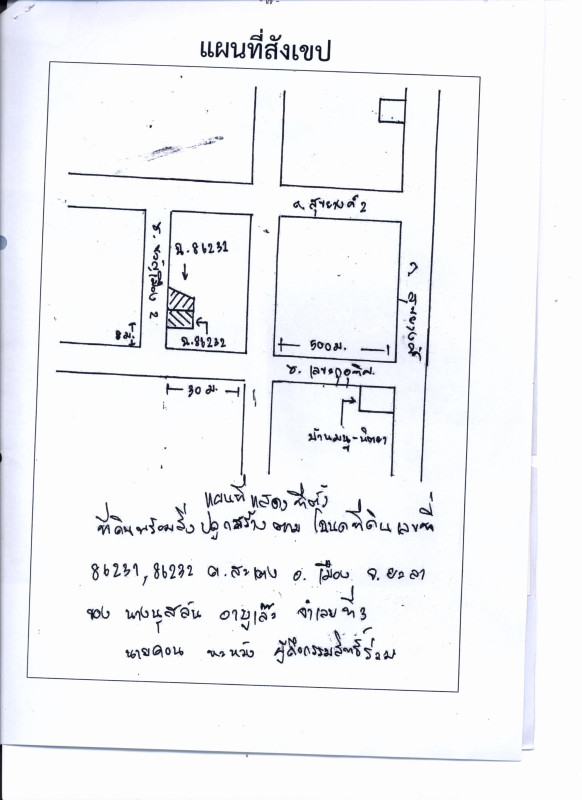 แผนที่สังเขป
ถ. สุขยางค์ 2
ฉ. 86231
ซ. 2
ฉ. 86232
8 ม.
500 ม.
ซ.
30 ม.
ถ. สุขยางค์
บ้านมนู-นิตยา
แผนที่แสดงที่ตั้ง
ที่ดินพร้อมสิ่งปลูกสร้าง ตาม โฉนดที่ดิน เลขที่
86231, 86232 ต.สะเตง อ.เมือง จ.ยะลา
ของ นางนุสลัน อาบูเล๊ะ จำเลยที่ 3
นาย ผู้ถือกรรมสิทธิ์ร่วม